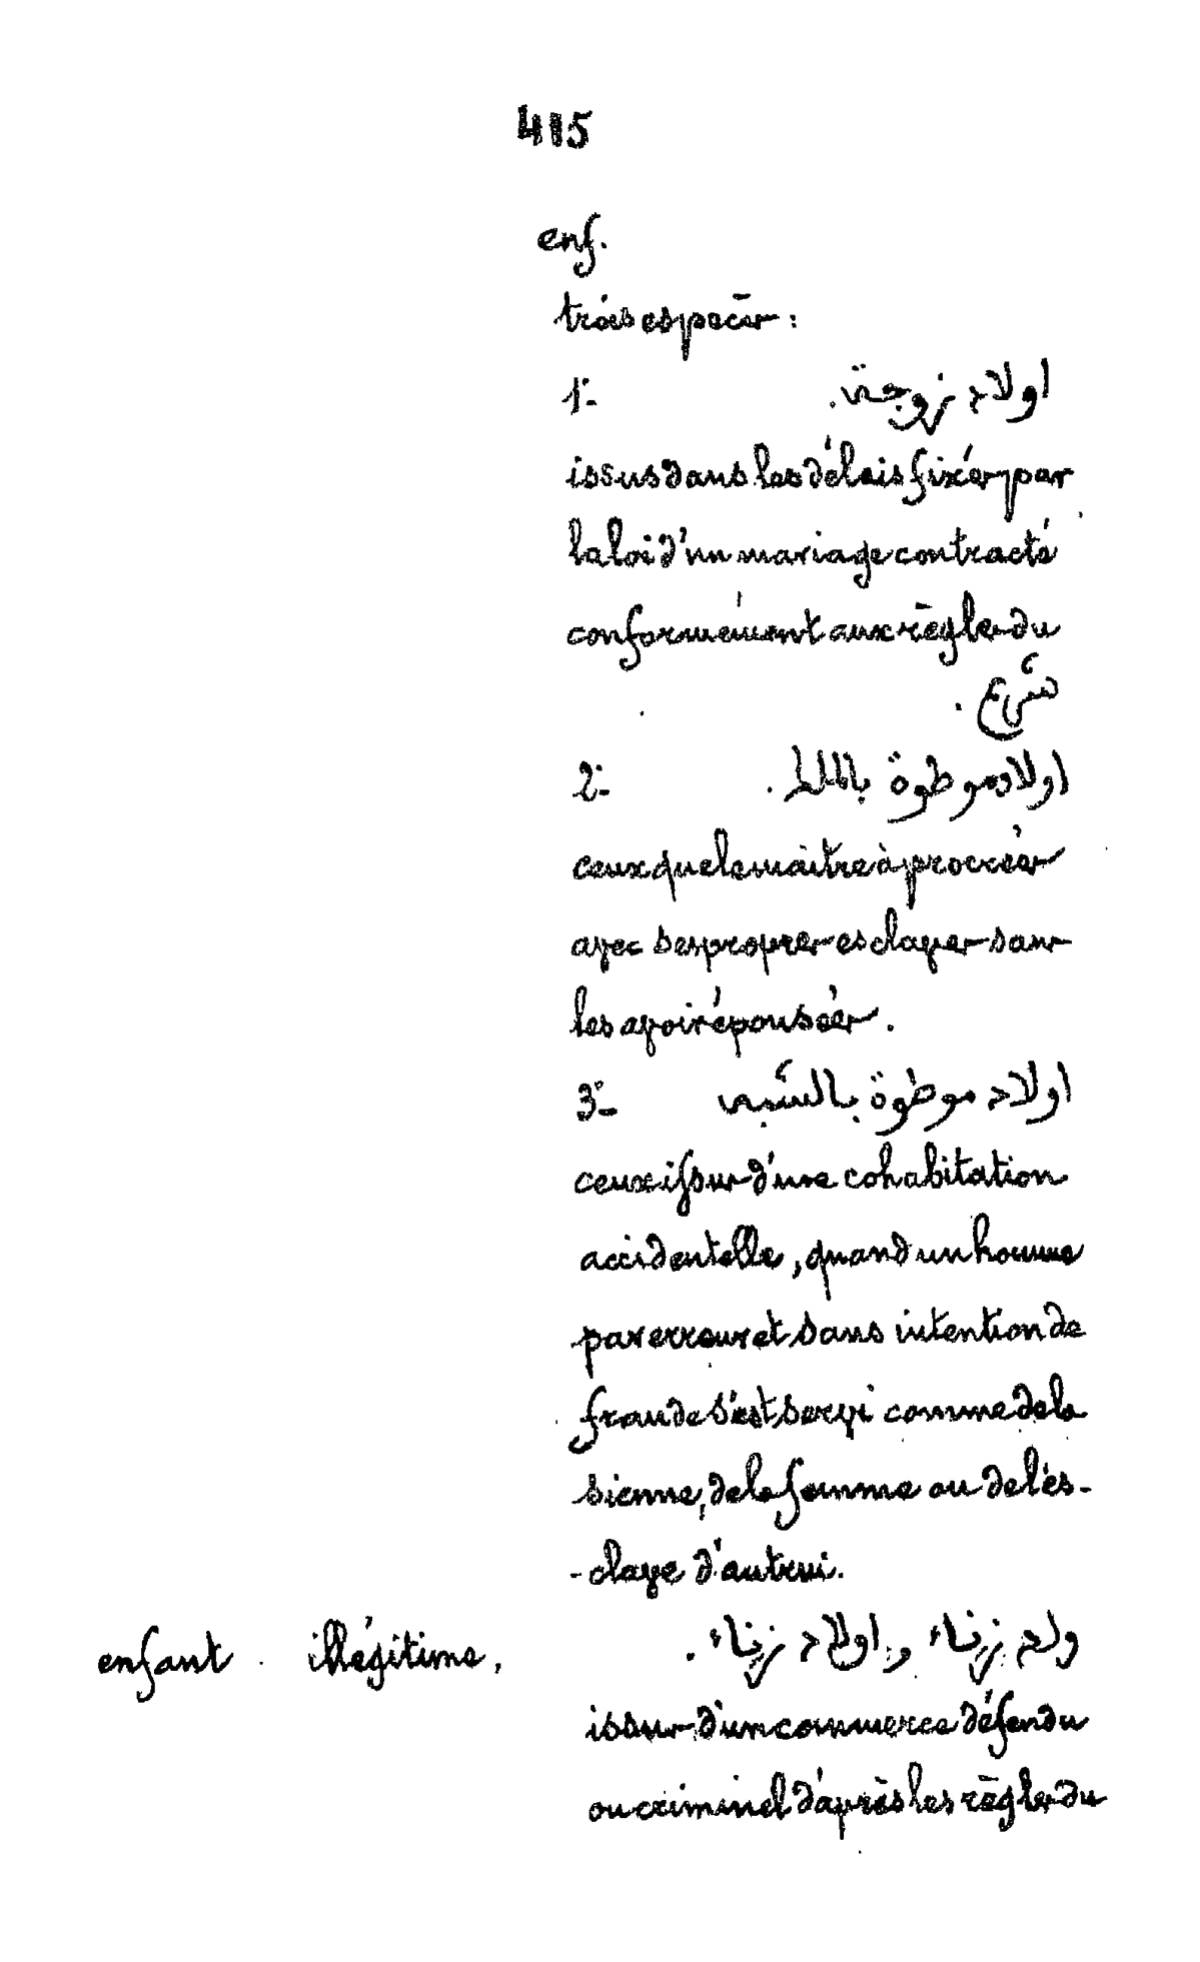 415
enf.
trois espèces :
1º اولاد زوجة.
issus dans les délais fixés par
la loi d'un mariage contracté
conformément aux règles du
شرع .
2º اولاد موطوة بالملك .
ceux que le maître à procréés
avec ses propres esclaves sans
les avoir épousées .
3º اولاد موطوة بالشبهه
ceux issus d'une cohabitation
accidentelle, quand un homme
par erreur et sans intention de
fraude s'est servi comme de la
sienne, de la femme ou de l'es-
-clave d'autrui.
enfant illégitime, ولد زناء و اولاد زناء .
issus d'un commerce défendu
ou criminel d'après les règles du